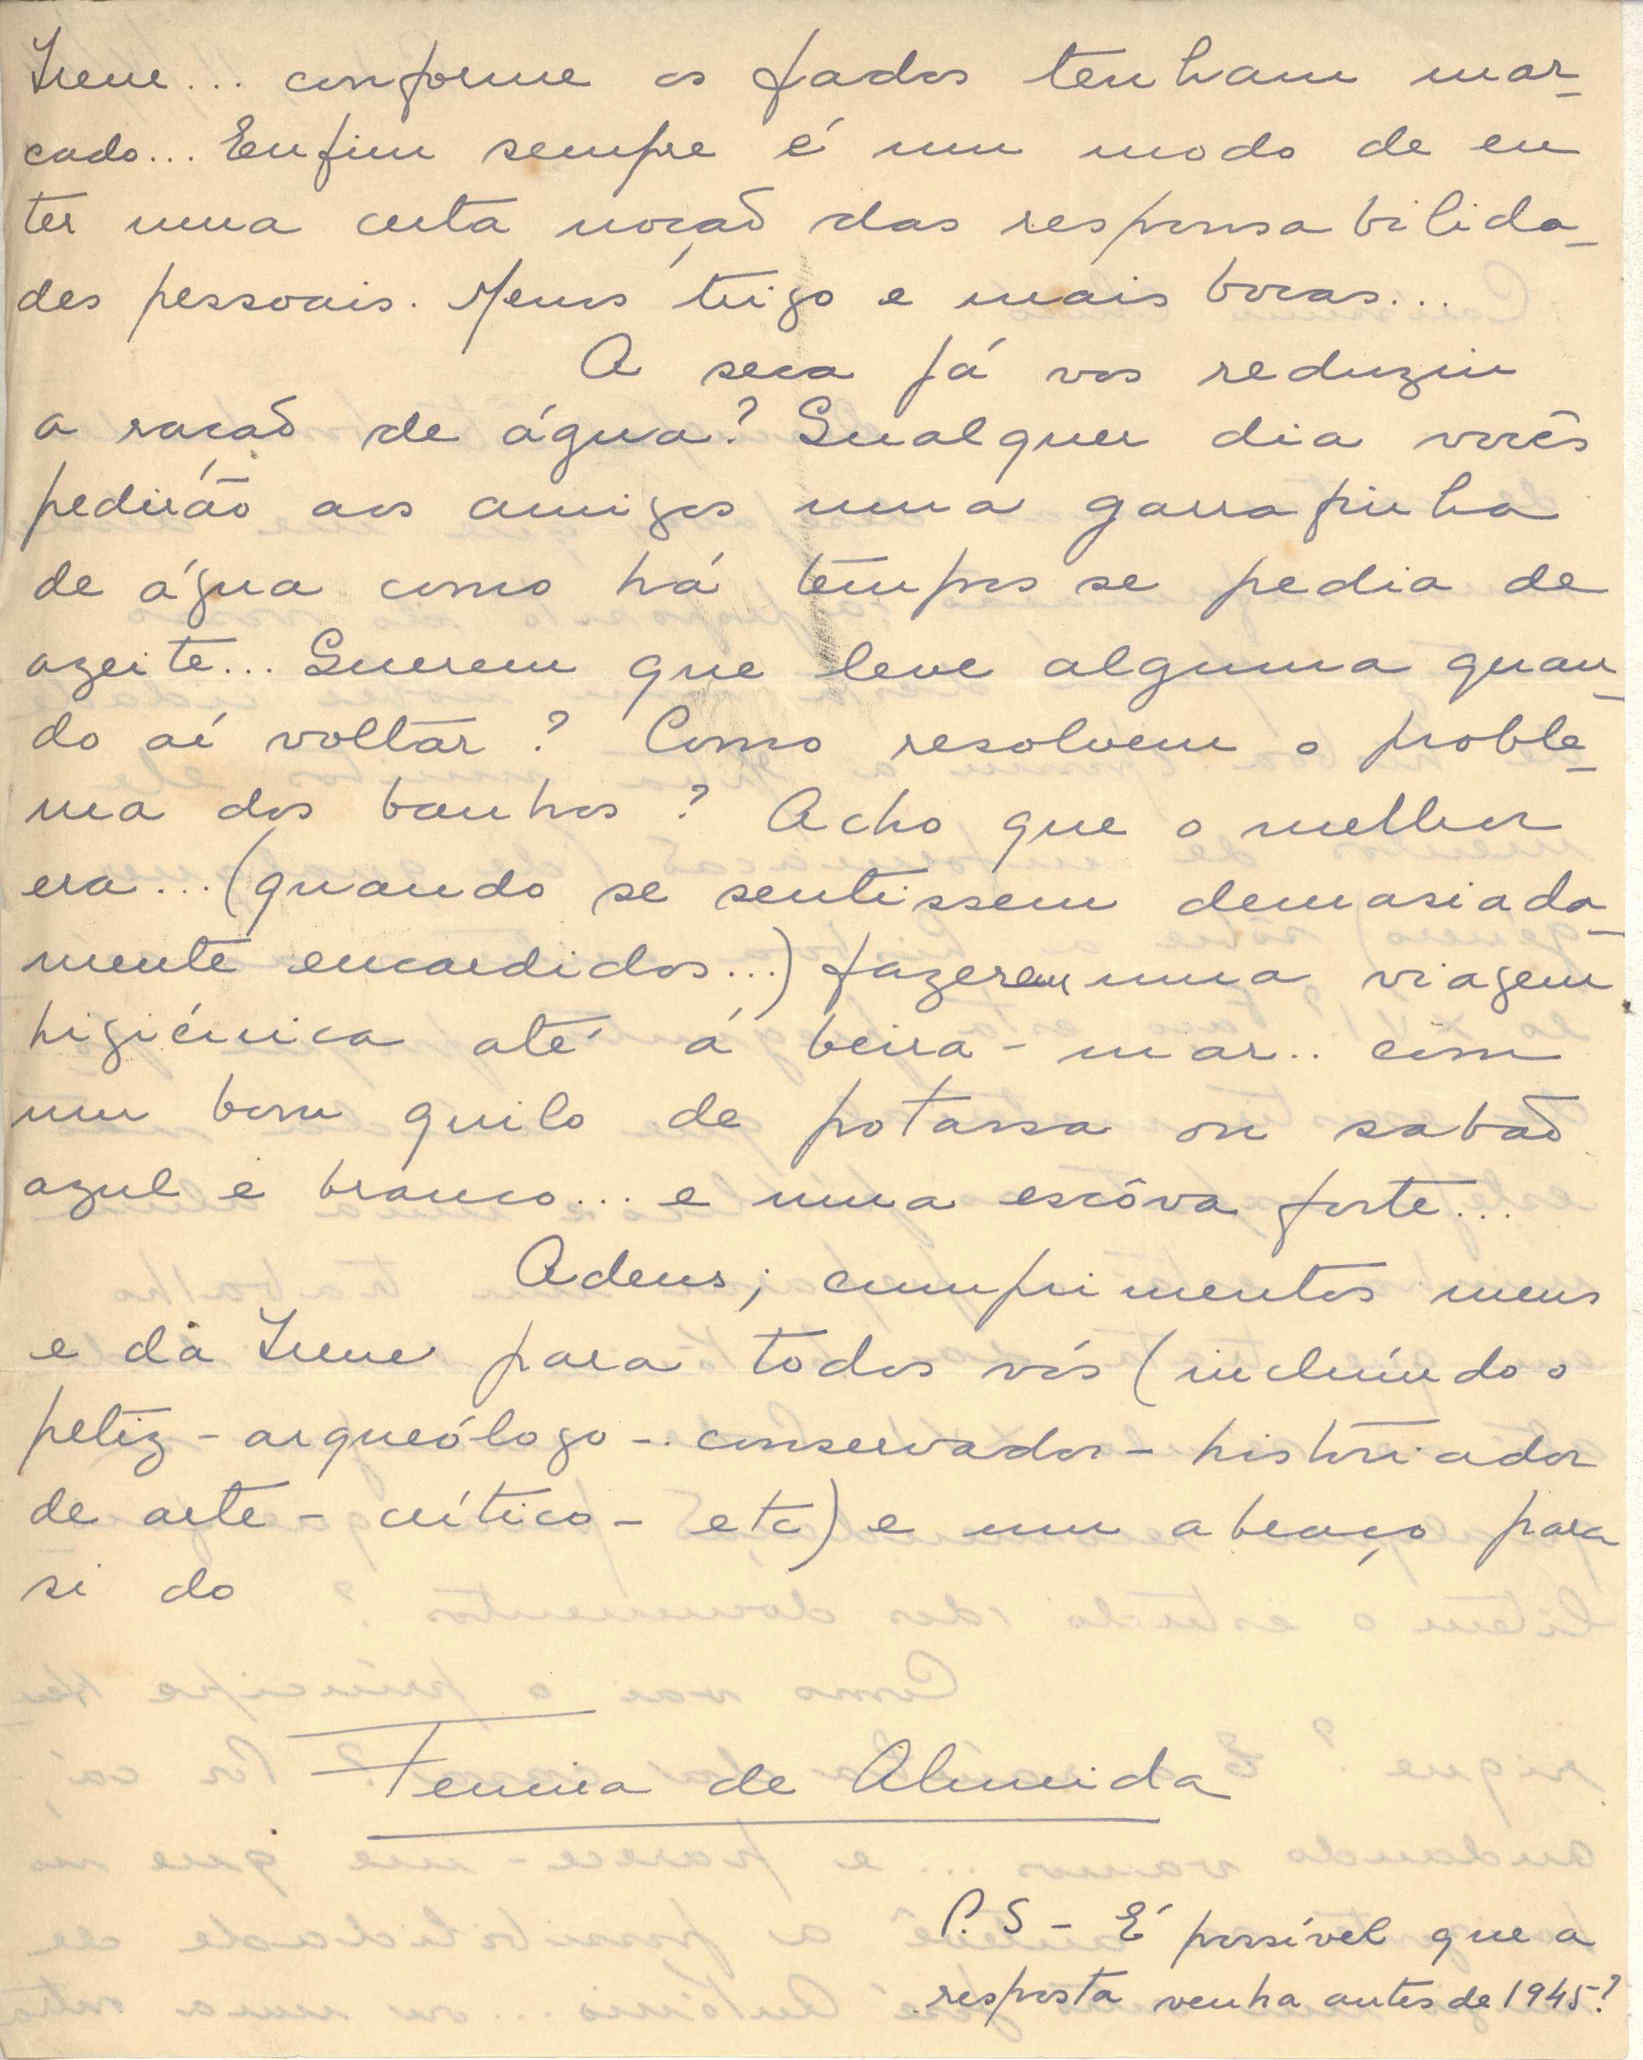 Irene... conforme os fados tenham mar-
cado... Enfim sempre é um modo de eu
ter uma certa noção das responsabilida-
des pessoais. Menos trigo e mais bocas...
A seca já vos reduziu
a ração de água? Qualquer dia vocês
pedirão aos amigos uma garrafinha
de água como há tempos se pedia de
azeite... Querem que leve alguma quan-
do aí voltar? Como resolvem o proble-
ma dos banhos? Acho que o melhor
era... (quando se sentissem demasiada-
mente encardidos...) fazerem uma viagem
higiénica até á beira-mar.. com
um bom quilo de potassa ou sabão
azul e branco... e uma escôva forte...
Adeus; cumprimentos meus
e da Irene para todos vós (incluíndo o
petiz-arqueólogo-conservador-historiador
de arte-crítico-etc) e um abraço para
si do
Ferreira de Almeida
P.S - É possível que a
resposta venha antes de 1945?